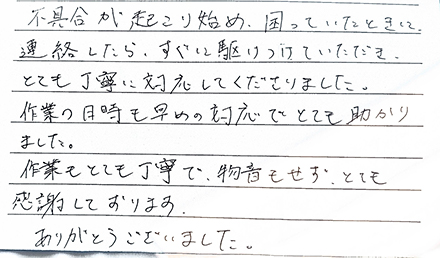 不具合が起こり始め、困っていたときに、
連絡したら、すぐに駆けつけていただき、
とても丁寧に対応してくださりました。
作業の日時も早めの対応でとても助かり
ました。
作業もとても丁寧で、物音もせず、とても
感謝しております。
ありがとうございました。